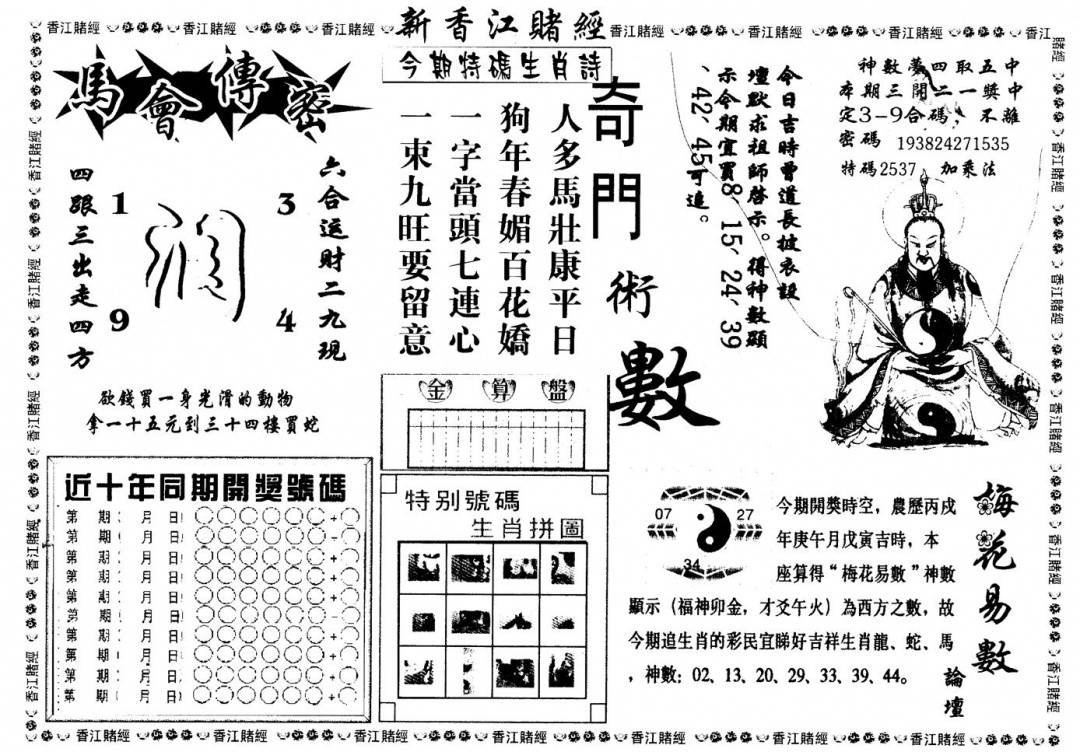 新香江賭經
今期特碼生肖詩
人多馬壯康平日
狗年春媚百花嬌
一字當頭七連心
一束九旺要留意
馬會傳密
六合运財二九現
四跟三出走四方
1
3
9
4
欲錢買一身光滑的動物
拿一十五元到三十四樓買蛇
奇門術數
今日吉時曾道長披衣設
壇默求祖師啓示。得神數顯
示今期宜買8、15、24、39
、42、45可追。
神數夢四取五中
本期三開二一獎中
定3-9合碼、不離
密碼 193824271535
特碼2537、加乘法
金算盤
近十年同期開獎號碼
第 期: 月 日:
第 期: 月 日:
第 期: 月 日:
第 期: 月 日:
第 期: 月 日:
第 期: 月 日:
第 期: 月 日:
第 期: 月 日:
第 期: 月 日:
第 期: 月 日:
特别號碼
生肖拼圖
07
27
34
梅花易數
論壇
今期開獎時空，農歷丙戌
年庚午月戊寅吉時，本
座算得“梅花易數”神數
顯示（福神卯金，才爻午火）為西方之數，故
今期追生肖的彩民宜睇好吉祥生肖龍、蛇、馬
，神數：02、13、20、29、33、39、44。
香江賭經